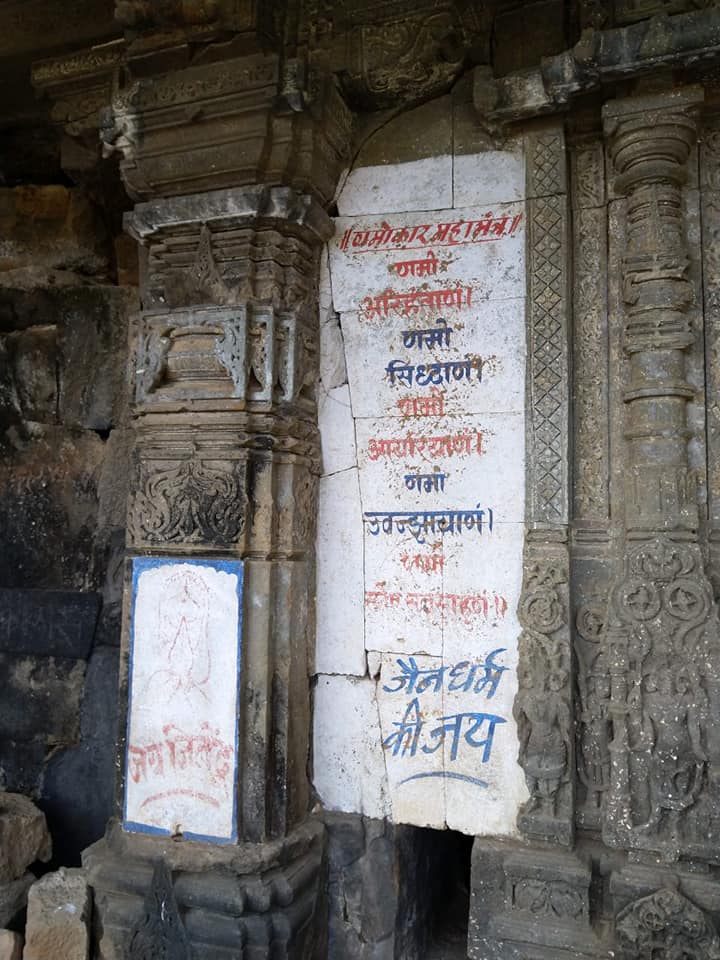 ॥णमोकार महामंत्र॥
णमो
अरिहंताणं।
णमो
सिध्दाणं।
णमो
आयरियाणं।
णमो
उवज्झायाणं।
णमो
जैन धर्म
की जय
जय जिनेंद्र